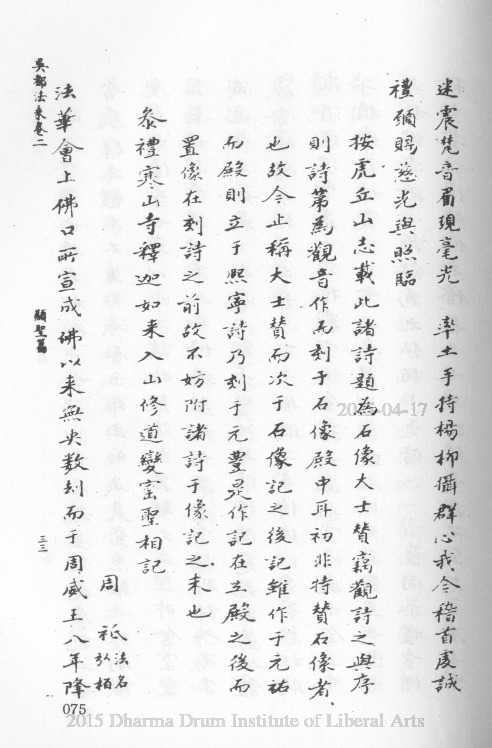 迷震梵音眉現毫光　率土手持楊柳攝群心我今稽首虔誠
禮碩賜慈光與照臨
按虎丘山志載此諸詩題為石像大士贊竊觀詩之與序
則詩第為觀音作而刻于石像殿中耳初非特贊石像者
也故今止稱大士贊而次于石像記之後記雖作于元祐
而殿則立于熙寧詩乃刻于元豊是作記在立殿之後而
置像在刻詩之前故不妨附諸詩于像記之末也
叅禮寒山寺釋迦如来入山修道變室聖相記
周祗法名弘栢
法華會上佛口所宣成佛以来無央數刦而于周威王八年降
吳都法乘卷二
顯聖篇
三三
075
2015-04-17
2015 Dharma Drum Institute of Liberal Arts